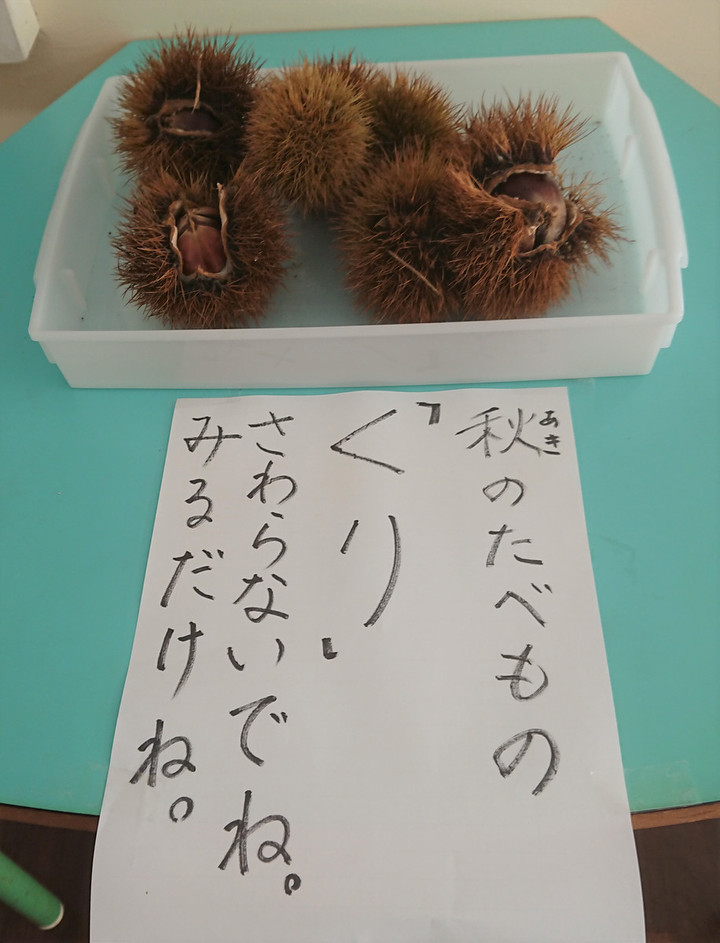 秋のたべもの
あき
「くり」
さわらないでね。
みるだけね。